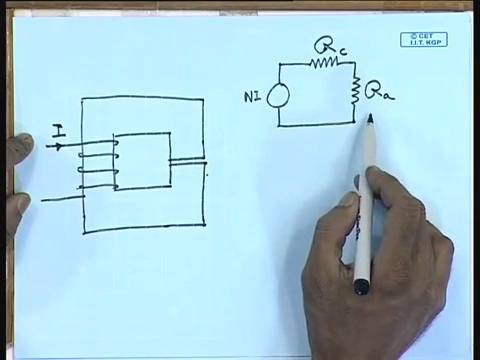 © CET
I.I.T. KGP
I
NI
R c
R a